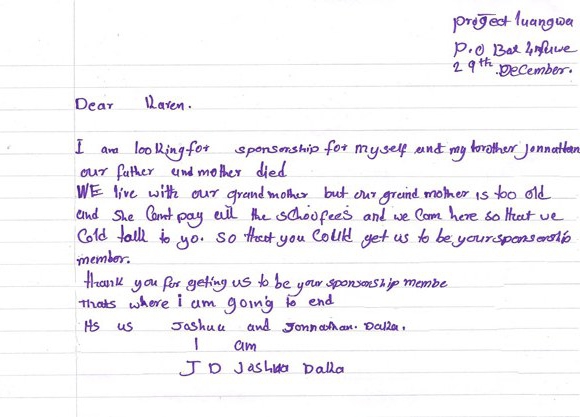 project luangwa
P.O Box Mfuwe
29th December.
Dear Karen.
I am looking for sponsorship for myself and my brother Jonnathan
our father and mother died
WE live with our grandmother but our grand mother is too old
and she Cant pay all the schoolfees and we Cam here so that we
Cold talk to yo. so that you Could get us to be your sponsership
member.
thank you for geting us to be your sponsorship membe
thats where i am going to end
Its us Joshua and Jonnathan. Dalla.
I am
J D Joshua Dalla